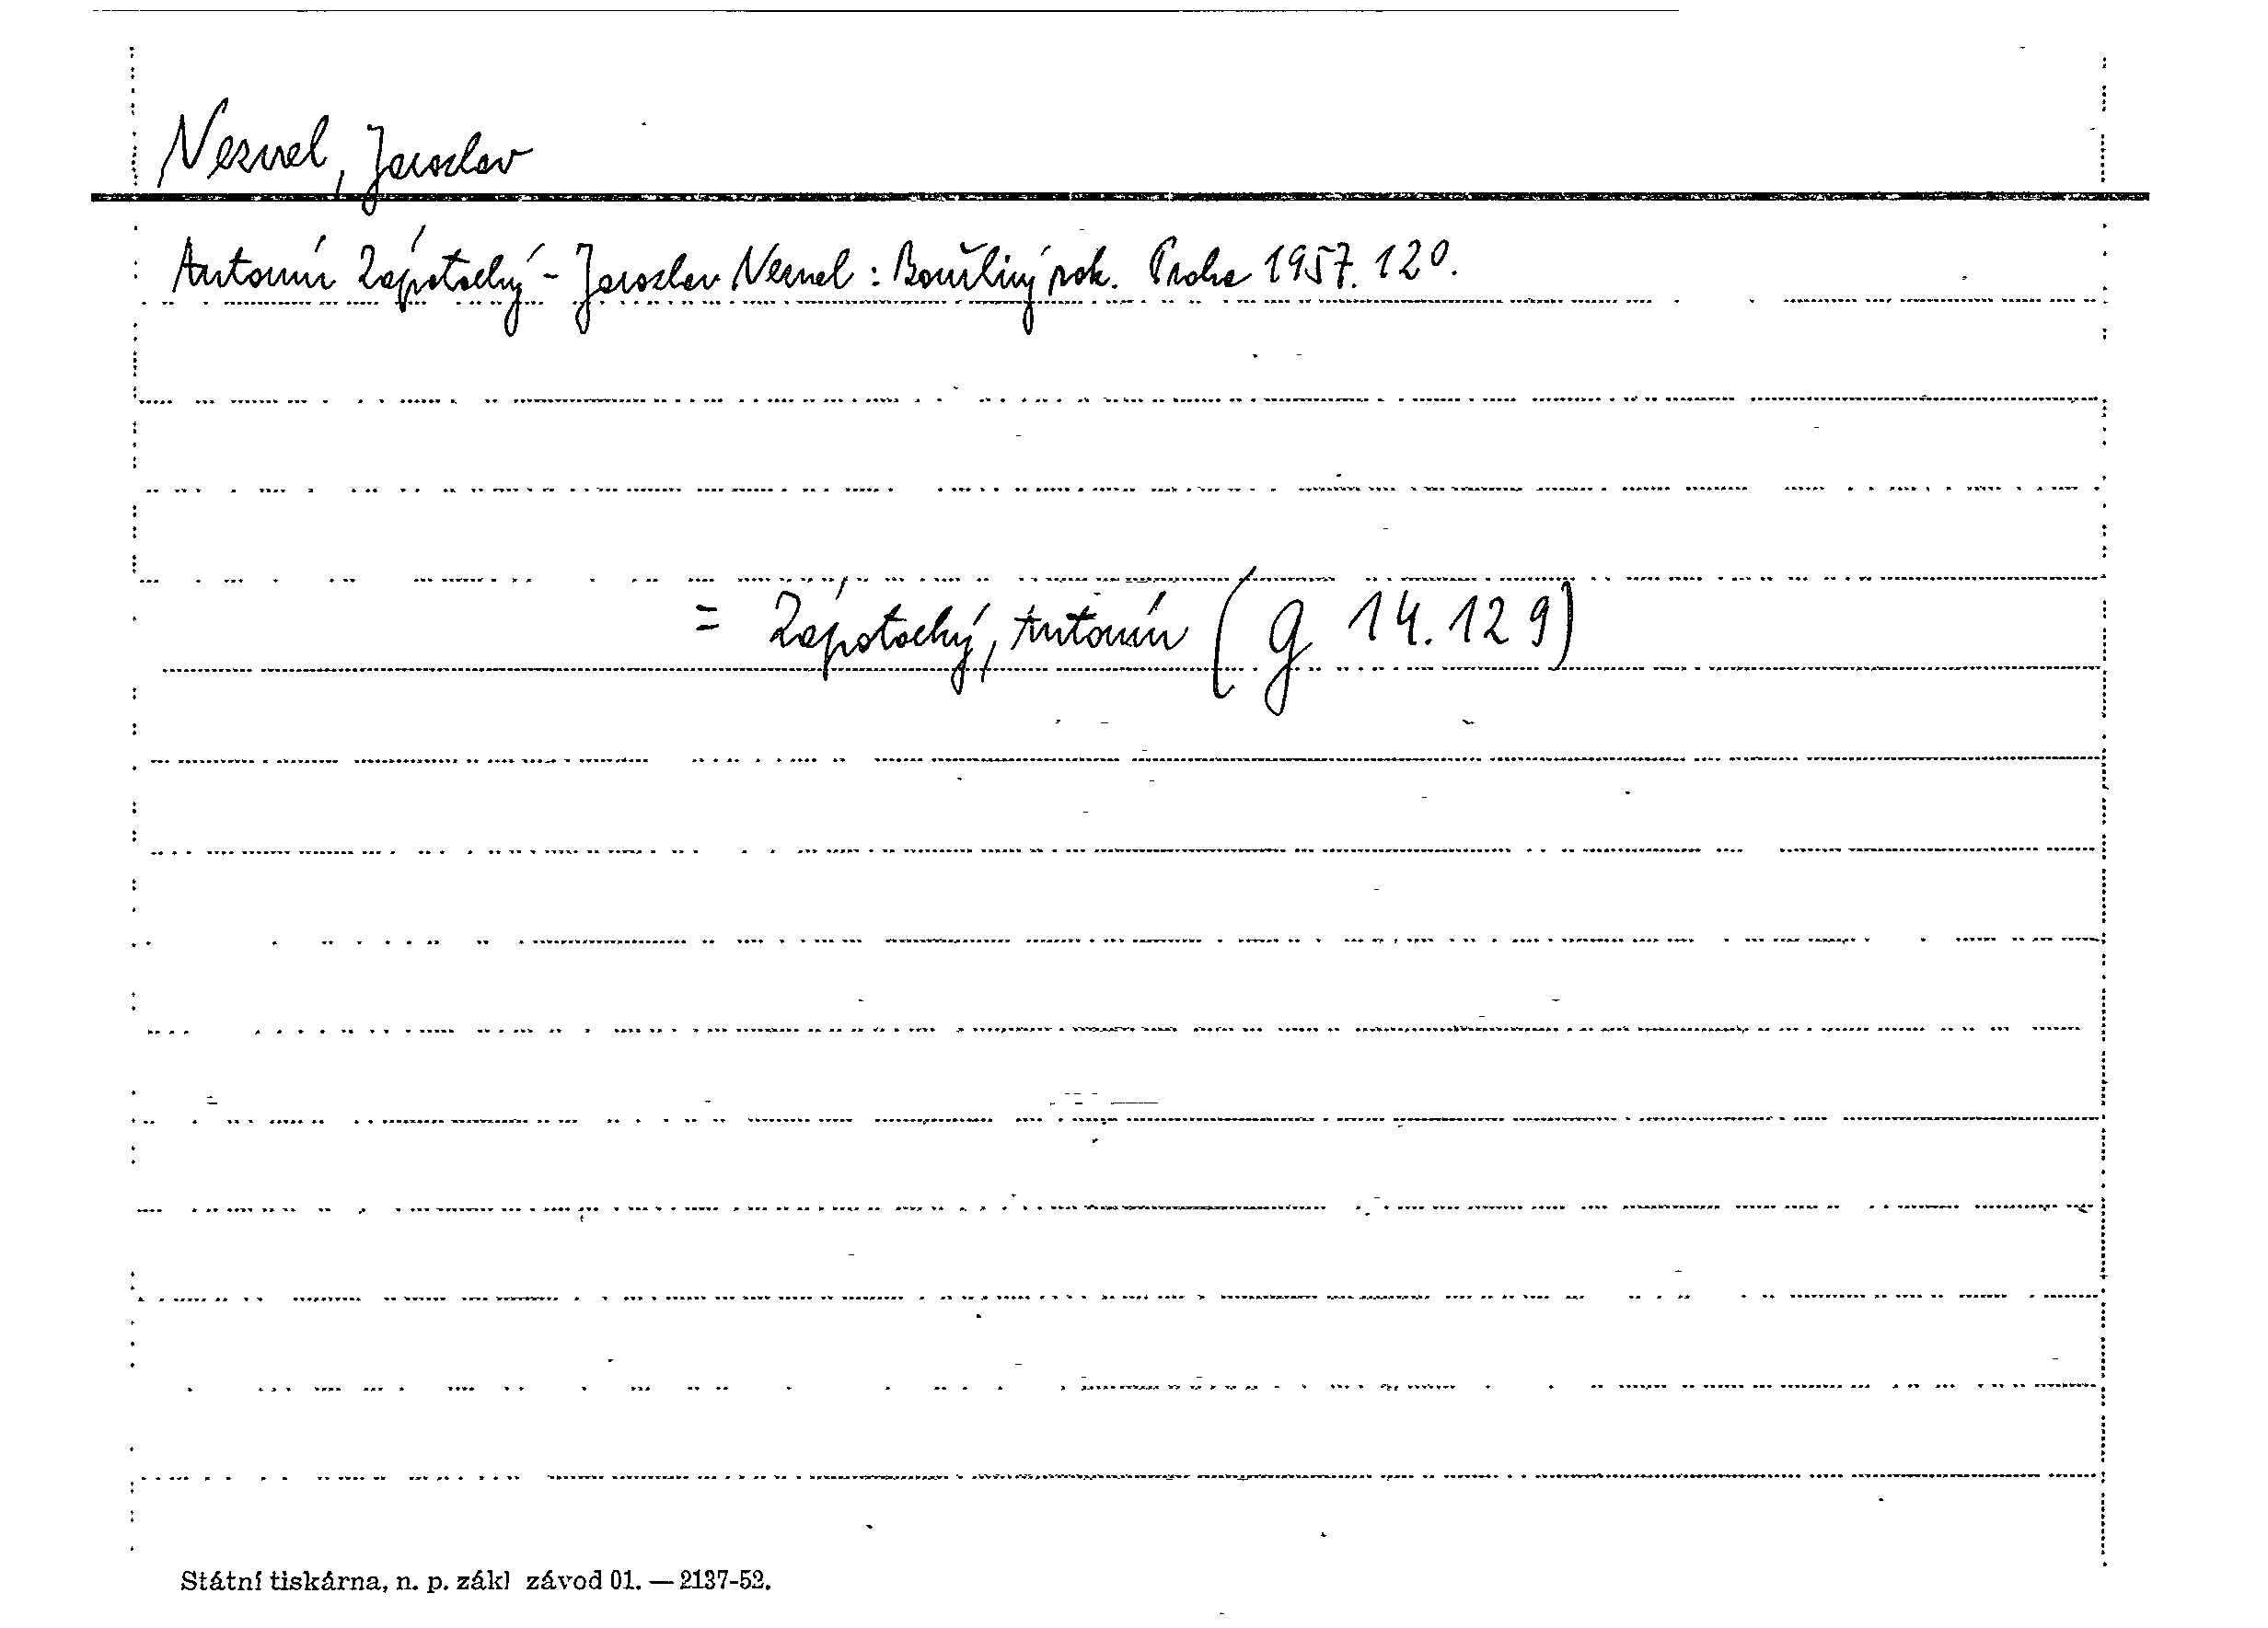 Nezval, Jaroslav
Antonín Zápotocký - Jaroslav Nezval: Bouřlivý rok. Praha 1957. 120.
= Zápotocký, Antonín (g 14.129)
Státní tiskárna, n. p. zákl závod 01. — 2137-52.